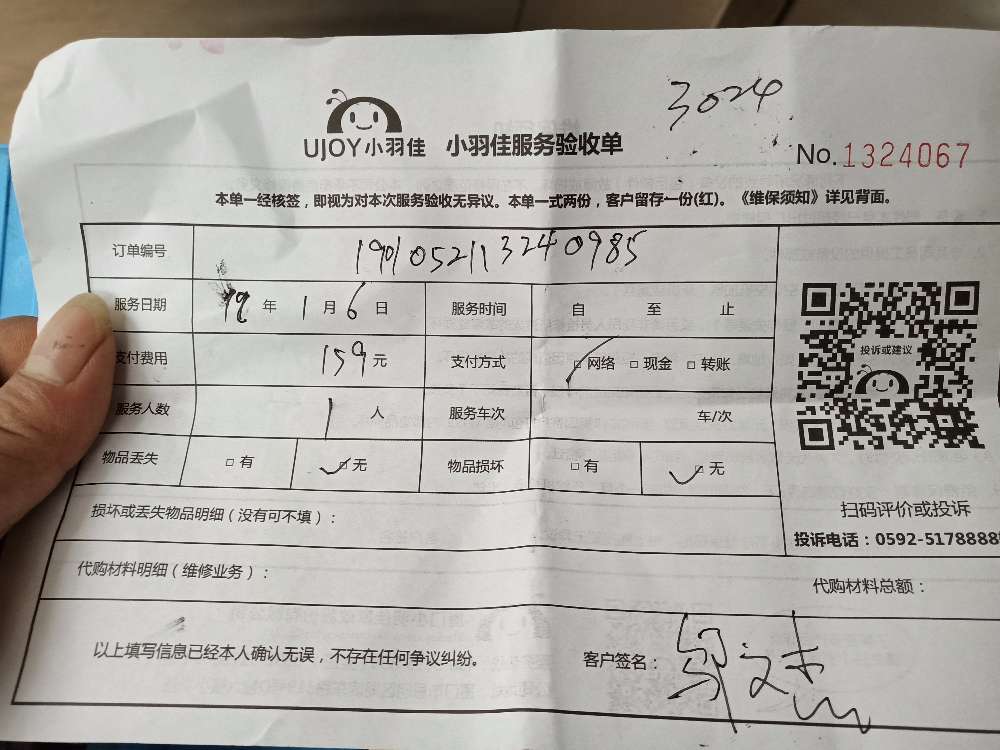 3024
UJOY小羽佳 小羽佳服务验收单
No. 1324067
本单一经核签，即视为对本次服务验收无异议。本单一式两份，客户留存一份(红)。《维保须知》详见背面。
订单编号 1901052113240985
服务日期 19 年 1 月 6 日 服务时间 自 至 止
支付费用 159 元 支付方式 □网络 □现金 □转账
投诉或建议
服务人数 1 人 服务车次 车/次
物品丢失 □有 □无 物品损坏 □有 □无
扫码评价或投诉
损坏或丢失物品明细（没有可不填）：
投诉电话：0592-5178888
代购材料明细（维修业务）： 代购材料总额：
以上填写信息已经本人确认无误，不存在任何争议纠纷。 客户签名：